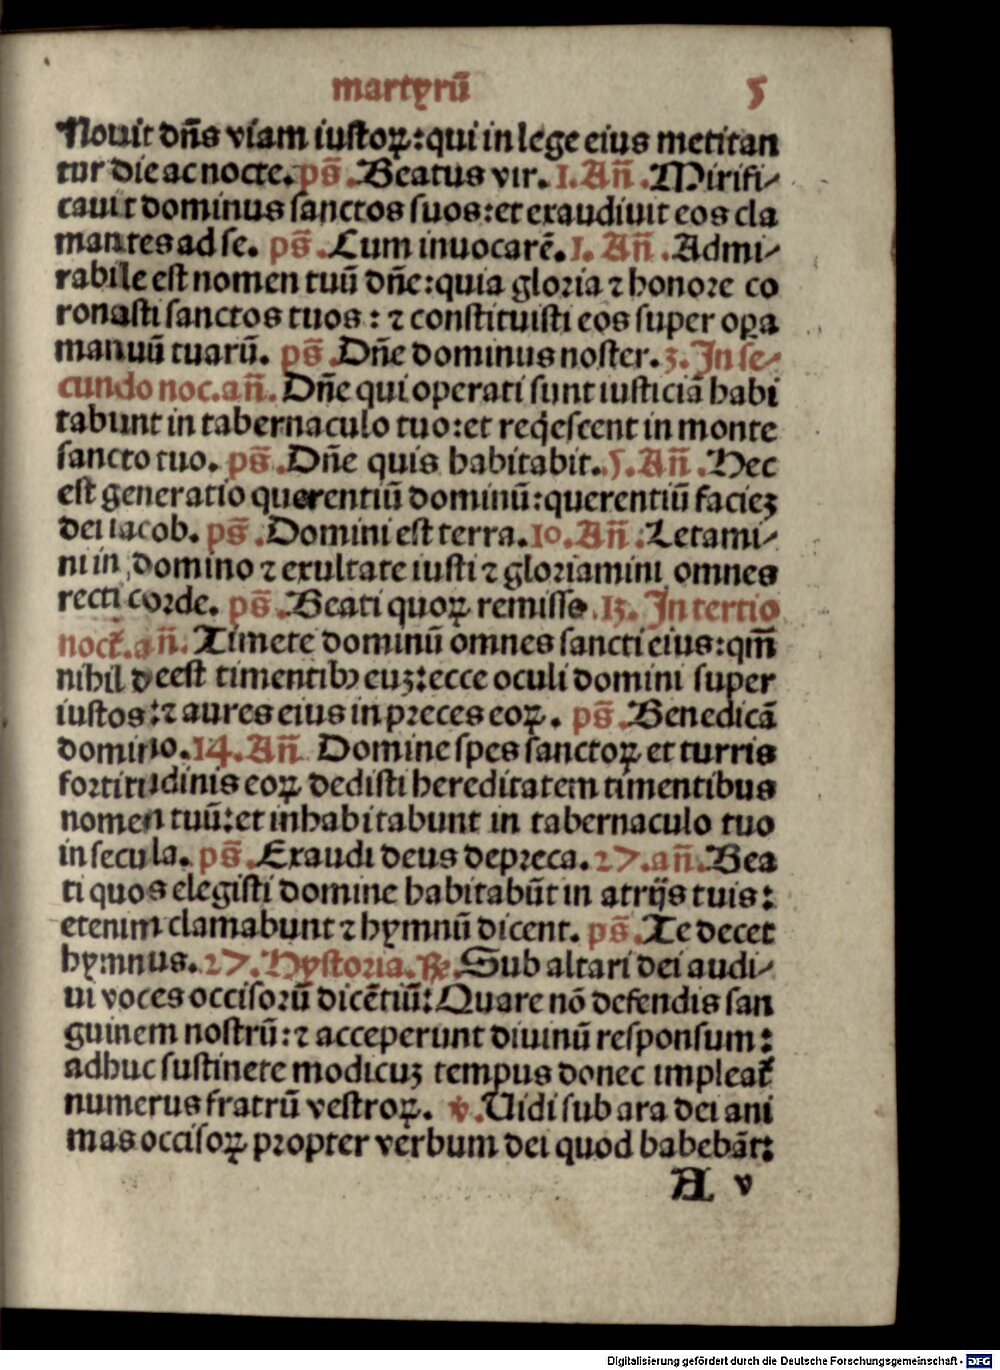 martyrū 5
Nouit dn̄s viam iustoꝝ: qui in lege eius metitan
tur die ac nocte. ps̄. Beatus vir. 1. An̄. Mirifi-
cauit dominus sanctos suos: et exaudiuit eos cla
mantes ad se. ps̄. Cum inuocarē. 1. An̄. Admi-
rabile est nomen tuū dn̄e: quia gloria ⁊ honore co
ronasti sanctos tuos: ⁊ constituisti eos super oꝑa
manuū tuarū. ps̄. Dn̄e dominus noster. 3. In se-
cundo noc. an̄. Dn̄e qui operati sunt iusticiā habi
tabunt in tabernaculo tuo: et reqͥescent in monte
sancto tuo. ps̄. Dn̄e quis habitabit. 5. An̄. Hec
est generatio querentiū dominū: querentiū facieꝫ
dei iacob. ps̄. Domini est terra. 10. An̄. Letami-
ni in domino ⁊ exultate iusti ⁊ gloriamini omnes
recti corde. ps̄. Beati quoꝝ remisse. 13. In tertio
noct̄. an̄. Timete dominū omnes sancti eius: qm̄
nihil deest timentibꝰ euꝫ: ecce oculi domini super
iustos: ⁊ aures eius in preces eoꝝ. ps̄. Benedicā
domino. 14. An̄ Domine spes sanctoꝝ et turris
fortitudinis eoꝝ dedisti hereditatem timentibus
nomen tuū: et inhabitabunt in tabernaculo tuo
in secula. ps̄. Exaudi deus depreca. 27. an̄. Bea
ti quos elegisti domine habitabūt in atrijs tuis:
etenim clamabunt ⁊ hymnū dicent. ps̄. Te decet
hymnus. 27. Hystoria. ℞. Sub altari dei audi-
ui voces occisorū dicētiū: Quare nō defendis san
guinem nostrū: ⁊ acceperunt diuinū responsum:
adhuc sustinete modicuꝫ tempus donec impleat̄
numerus fratrū vestroꝝ. ℣. Uidi sub ara dei ani
mas occisoꝝ propter verbum dei quod habebāt:
A v
Digitalisierung gefördert durch die Deutsche Forschungsgemeinschaft - DFG